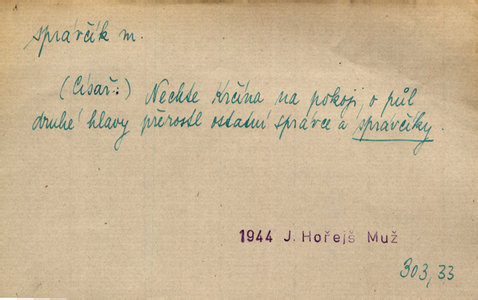 správčík m.
(Císař:) Nechte Krčína na pokoji, o půl
druhé hlavy přerostl ostatní správce a správčíky.
1944 J. Hořejš Muž
303, 33